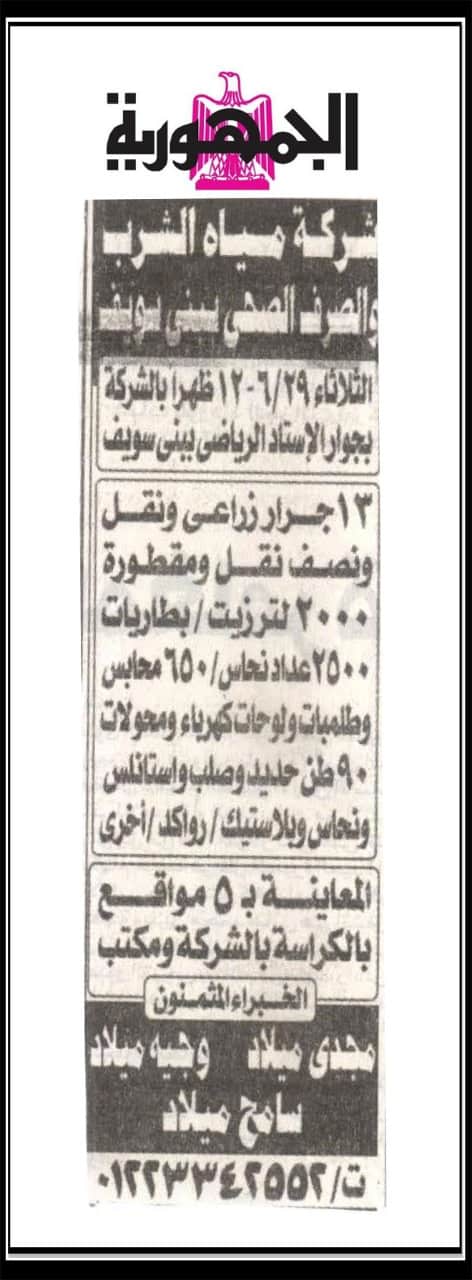 الجمهورية
شركة مياه الشرب
والصرف الصحى ببنى سويف
الثلاثاء ٦/٢٩-١٢ ظهرا بالشركة
بجوار الإستاد الرياضى ببنى سويف
١٣ جرار زراعى ونقل
ونصف نقل ومقطورة
٢٠٠٠ لترزيت / بطاريات
٢٥٠٠ عداد نحاس/ ٦٥٠ محابس
وطلمبات ولوحات كهرباء ومحولات
٩٠ طن حديد وصلب واستانلس
ونحاس وبلاستيك/ رواكد /أخرى
المعاينة بـ ٥ مواقع
بالكراسة بالشركة ومكتب
الخبراء المثمنون
مجدى ميلاد وجيه ميلاد
سامح ميلاد
ت/٠١٢٢٣٣٤٢٥٥٢